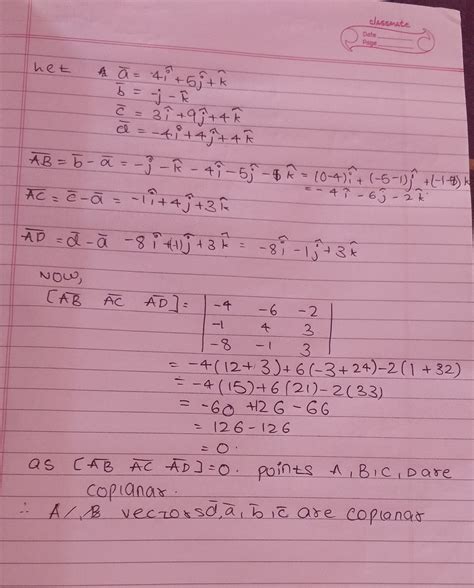 classmate
Date
Page
Let A a̅ = 4î+5ĵ+k̂
b̅ = -ĵ-k̂
c̅ = 3î+9ĵ+4k̂
d̅ = -4î+4ĵ+4k̂
A̅B̅ = b̅-a̅ = -ĵ-k̂-4î-5ĵ-k̂ = (0-4)î+(-5-1)ĵ+(-1-1)k̂
= -4î-6ĵ-2k̂
A̅C̅ = c̅-a̅ = -1î+4ĵ+3k̂
A̅D̅ = d̅-a̅ -8î+(-1)ĵ+3k̂ = -8î-1ĵ+3k̂
NOW,
[A̅B̅ A̅C̅ A̅D̅] = | -4 -6 -2 |
| -1 4 3 |
| -8 -1 3 |
= -4(12+3)+6(-3+24)-2(1+32)
= -4(15)+6(21)-2(33)
= -60+126-66
= 126-126
= 0.
as [A̅B̅ A̅C̅ A̅D̅]=0. points A,B,C,D are
coplanar.
∴ A/,B vectors d̅,a̅,b̅,c̅ are coplanar